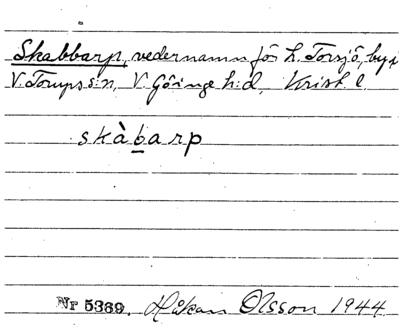 Skabbarp, vedernamn för h. Torsjö, by i
V. Torups s:n, V. Göinge h:d, Krist. l.
skàbarp
Nr 5369. Håkan Olsson 1944